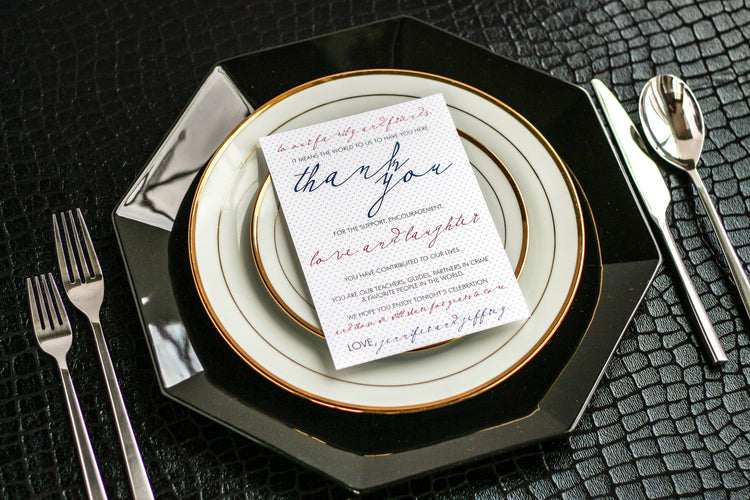 to our family and friends,
IT MEANS THE WORLD TO US TO HAVE YOU HERE
thank
you
FOR THE SUPPORT, ENCOURAGEMENT,
love and laughter
YOU HAVE CONTRIBUTED TO OUR LIVES.
YOU ARE OUR TEACHERS, GUIDES, PARTNERS IN CRIME
& FAVORITE PEOPLE IN THE WORLD
WE HOPE YOU ENJOY TONIGHT'S CELEBRATION
and those we will share for years to come
LOVE, jennifer and jeffrey